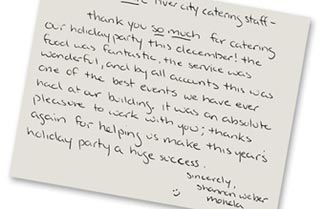 river city catering staff-
thank you so much for catering
our holiday party this december! the
food was fantastic, the service was
wonderful, and by all accounts this was
one of the best events we have ever
had at our building. it was an absolute
pleasure to work with you; thanks
again for helping us make this year's
holiday party a huge success.
sincerely,
shannon weber
mohela